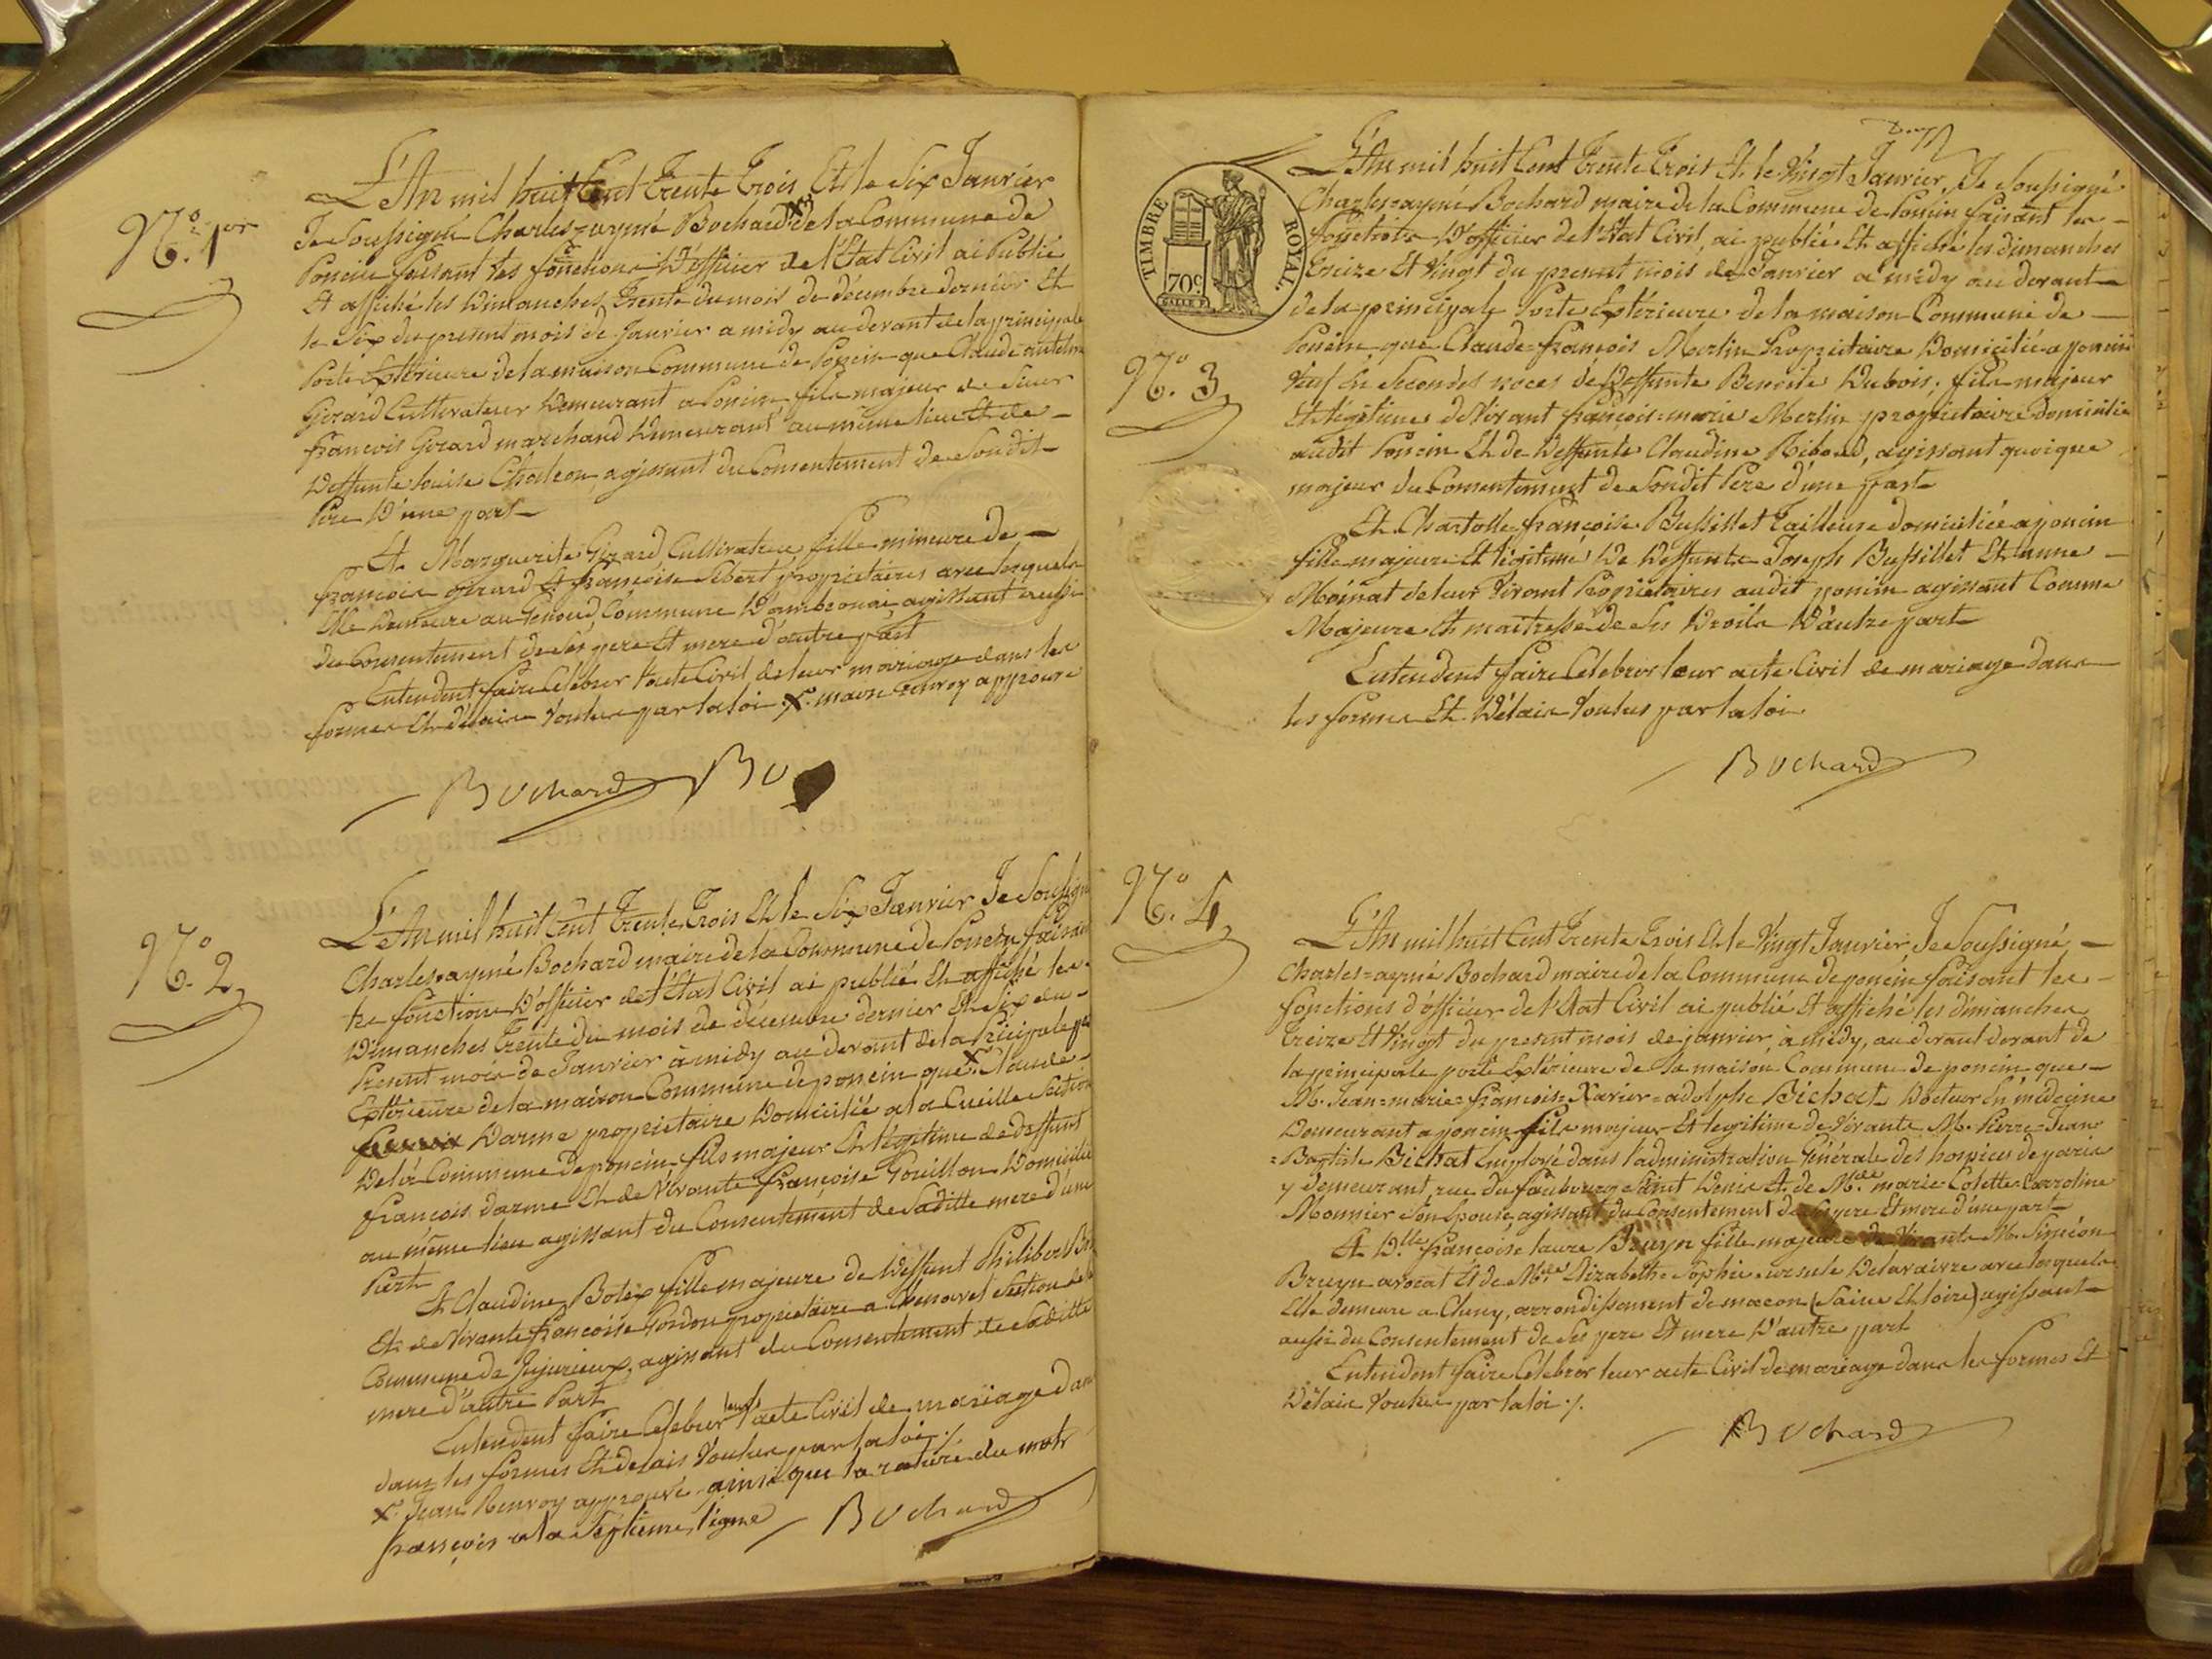 N.o 1er
L'An mil huit Cent Trente Trois Et le Six Janvier
Je Soussigné Charles=aymé Bochard X de la Commune de
Poncin faisant les fonctions D'officier de l'Etat Civil ai Publié
Et affiché les Dimanches Trente du mois de décembre dernier Et
le Six du present mois de Janvier a midy au devant de la principale
Porte Extérieure de la maison Commune de Poncin que Claude antelme
Gerard Cultivateur Demeurant a Poncin fils majeur de Sieur
françois Gerard marchand Demeurant au même lieu Et de
Deffunte louise Chaleon agissant du Consentement de Son dit
Père D'une part
Et Marguerite Girard Cultivatrice fille mineure de
françois girard Et françoise Sibert propriétaires avec lesquels
Elle Demeure au Genoud, Commune D'ambronai, agissant aussi
du Consentement de Ses pere Et mere d'autre part
Entendent faire Celebrer l'acte Civil de leur mariage dans les
formes Et Délais Voulus par la loi X. maire Renvoy approuvé
Bochard Bo
N.o 2
L'An mil huit Cent Trente Trois Et le Six Janvier Je Soussigné
Charles=aymé Bochard maire de la Commune de Poncin faisant
les fonctions D'officier de l'Etat Civil ai publié Et affiché les
Dimanches Trente Du mois de décembre dernier Et Six du
Present mois de Janvier à midy au devant de la Principale
Extérieure de la maison Commune de poncin que X Claude
Darme propriétaire Domicilié a la Cueille Section
De la Commune de poncin fils majeur Et légitime de deffunt
françois darme Et de Vivante françoise Gouillon Domiciliée
au même lieu agissant du Consentement de Sadite mere d'une
Part
Et Claudine Bolex fille majeure de Deffunt Philibert
Et de Vivante françoise Gordon propriétaire a Chenavel Section de
Commune de Jujurieux, agissant du Consentement de Sadite
mere d'autre Part
Entendent faire Celebrer leur acte Civil de mariage dans
dans les formes Et delais Voulus par la loi ./.
X Jean Renvoy approuvé ainsi que la rature du mot
françois a la Septieme ligne Bochard
TIMBRE ROYAL.
70c
N.o 3
L'An mil huit Cent Trente Trois Et le Vingt Janvier, Je Soussigné
Charles=aymé Bochard maire de la Commune de Poncin faisant les
fonctions D'officier de l'Etat Civil, ai publié Et affiché les dimanches
Treize Et Vingt du present mois de Janvier a midy au devant
de la principale Porte Extérieure de la maison Commune de
Poncin que Claude=françois Merlin Propriétaire Domicilié a poncin
Veuf En Secondes noces de Deffunte Benoite Dubois, fils majeur
Et légitime de Vivant françois=marie Merlin propriétaire Domicilié
audit Poncin Et de Deffunte Claudine Riboud, agissant quoique
majeur du Consentement de Sondit Père d'une part
Et françoise Bussillet Tailleuse domiciliée a poncin
fille majeure Et légitime De Deffunts Joseph Bussillet Et anne
Moinat de leur Vivant Propriétaires audit poncin agissant Comme
Majeure Et maitresse de Ses Droits D'autre part
Entendent faire Celebrer leur acte Civil de mariage dans
les formes Et Délais Voulus par la loi
Bochard
N.o 4
L'An mil huit Cent Trente Trois Et le Vingt Janvier, Je Soussigné
Charles=aymé Bochard maire de la Commune de poncin faisant les
fonctions d'officier de l'Etat Civil ai publié Et affiché les dimanches
Treize Et Vingt du present mois de janvier, à midy, au devant devant de
la principale porte Extérieure de la maison Commune de poncin que
M. Jean=marie=françois=Xavier=adolphe Bichat Docteur En médecine
Demeurant a poncin fils majeur Et legitime de Vivants M. Pierre=Jean
=Baptiste Bichat Employé dans l'administration Générale des hospices de paris
y demeurant rue du faubourg Saint Denis Et de M.de marie=Colette=Carroline
Monnier Son Epouse, agissant du Consentement de Ses pere Et mere d'une part
Et D.lle françoise laure Bruyn fille majeure de Vivants M. Siméon
Bruyn avocat Et de M.de Elizabeth=Sophie=ursule Delavaivre avec lesquels
Elle demeure a Cluny, arrondissement de macon (Saône Et loire) agissant
aussi du Consentement de Ses pere Et mere D'autre part
Entendent faire Celebrer leur acte Civil de mariage dans les formes Et
Délais Voulus par la loi ./.
Bochard